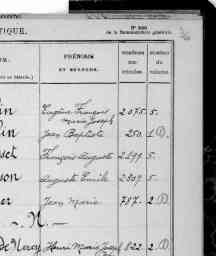 N° 200
de la Nomenclature générale.
TIQUE.
PRÉNOMS
ET SURNOMS.
NUMÉROS
NUMÉRO
du
VOLUME.
lin Eugène François 2075. 5.
Marie Joseph
lin Jean Baptiste 250. 1 D.
set François Auguste 2499. 5.
son Auguste Emile 2809. 5.
er Jean Marie 787. 2 D.
N.
de Nercy Henri Marie Joseph 822. 2 D.